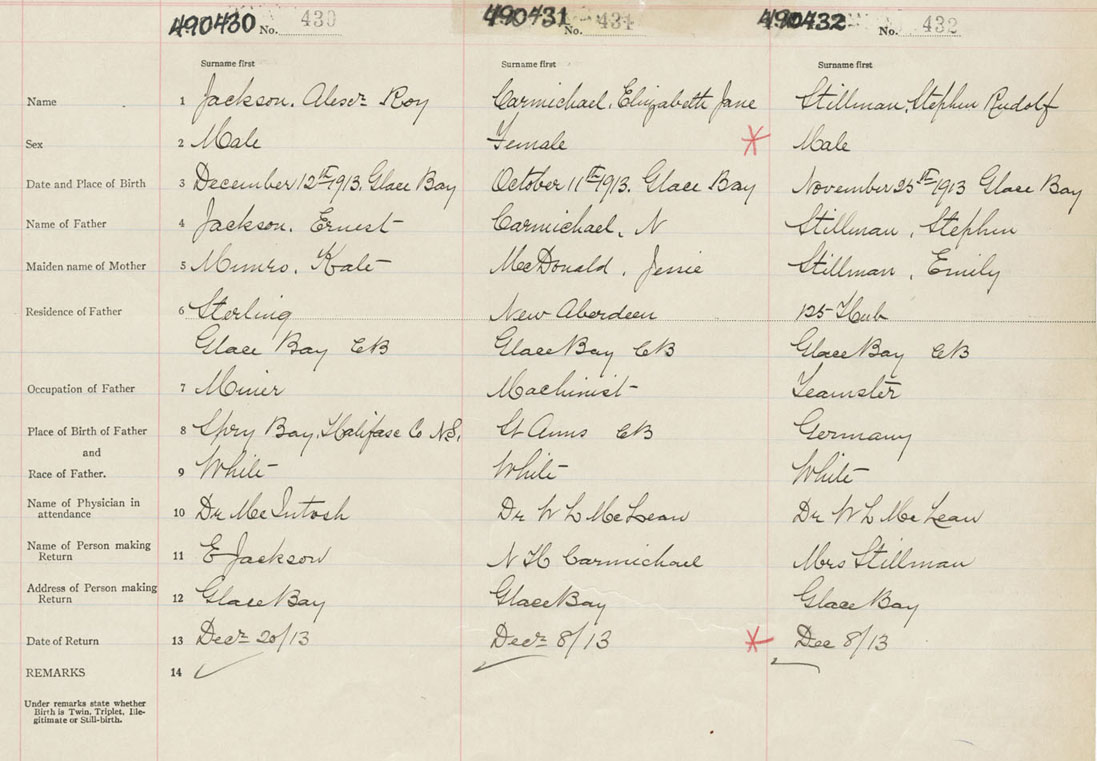 490430 No. 430 490431 No. 431 490432 No. 432
Surname first Surname first Surname first
Name 1 Jackson, Alexr Roy Carmichael, Elizabeth Jane Stillman, Stephen Rudolf
Sex 2 Male Female Male
Date and Place of Birth 3 December 12th 1913. Glace Bay October 11th 1913. Glace Bay November 25th 1913 Glace Bay
Name of Father 4 Jackson, Ernest Carmichael, N Stillman, Stephen
Maiden name of Mother 5 Munro, Kate McDonald, Jessie Stillman, Emily
Residence of Father 6 Sterling New Aberdeen 125 Hub
Glace Bay CB Glace Bay CB Glace Bay CB
Occupation of Father 7 Miner Machinist Teamster
Place of Birth of Father 8 Spry Bay, Halifax Co N.S. St Anns CB Germany
and
Race of Father. 9 White White White
Name of Physician in
attendance 10 Dr McIntosh Dr W L McLean Dr W L McLean
Name of Person making
Return 11 E Jackson N H Carmichael Mrs Stillman
Address of Person making
Return 12 Glace Bay Glace Bay Glace Bay
Date of Return 13 Decr 20/13 Decr 8/13 Dec 8/13
REMARKS 14
Under remarks state whether
Birth is Twin, Triplet, Ille-
gitimate or Still-birth.